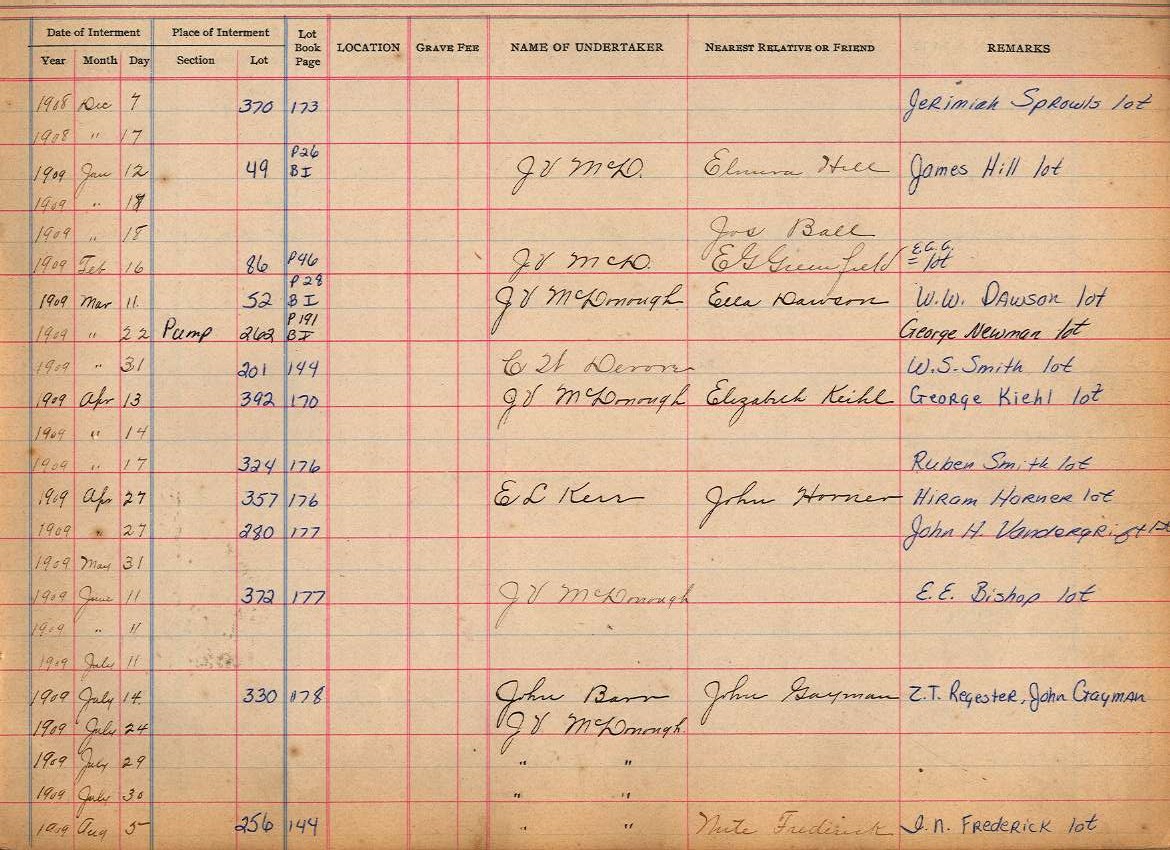 Date of Interment Place of Interment Lot Book Page LOCATION GRAVE FEE NAME OF UNDERTAKER NEAREST RELATIVE OR FRIEND REMARKS
Year Month Day Section Lot
1908 Dec 7 370 173 Jerimiah Sprowls lot
1908 " 17
1909 Jan 12 49 P26 B I J V McD. Elmira Hill James Hill lot
1909 " 18
1909 " 18 Jos Ball
1909 Feb 16 86 P46 J V McD. E G Greenfield E.G.G. lot
1909 Mar 11 52 P28 B I J V McDonough Ella Dawson W.W. Dawson lot
1909 " 22 Pump 262 P191 B I George Newman lot
1909 " 31 201 144 C W Devore W.S. Smith lot
1909 Apr 13 392 170 J V McDonough Elizabeth Keihl George Kiehl lot
1909 " 14
1909 " 17 324 176 Ruben Smith lot
1909 Apr 27 357 176 E L Kerr John Horner Hiram Horner lot
1909 " 27 280 177 John H. Vandergrift lot
1909 May 31
1909 June 11 372 177 J V McDonough E.E. Bishop lot
1909 " 11
1909 July 11
1909 July 14 330 178 John Barr John Gayman Z.T. Regester, John Gayman
1909 July 24 J V McDonough
1909 July 29 " "
1909 July 30 " "
1909 Aug 5 256 144 " " Nute Frederick I.N. Frederick lot